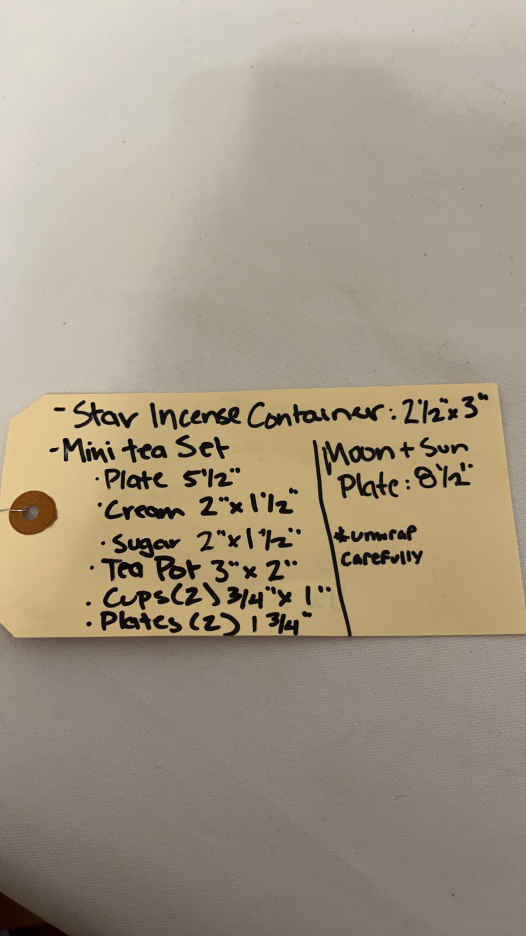 - Star Incense Container: 2 1/2" x 3"
- Mini tea Set
· Plate 5 1/2"
· Cream 2" x 1 1/2"
· Sugar 2" x 1 1/2"
· Tea Pot 3" x 2"
· Cups (2) 3/4" x 1"
· Plates (2) 1 3/4"
Moon + Sun
Plate: 8 1/2"
* unwrap
carefully